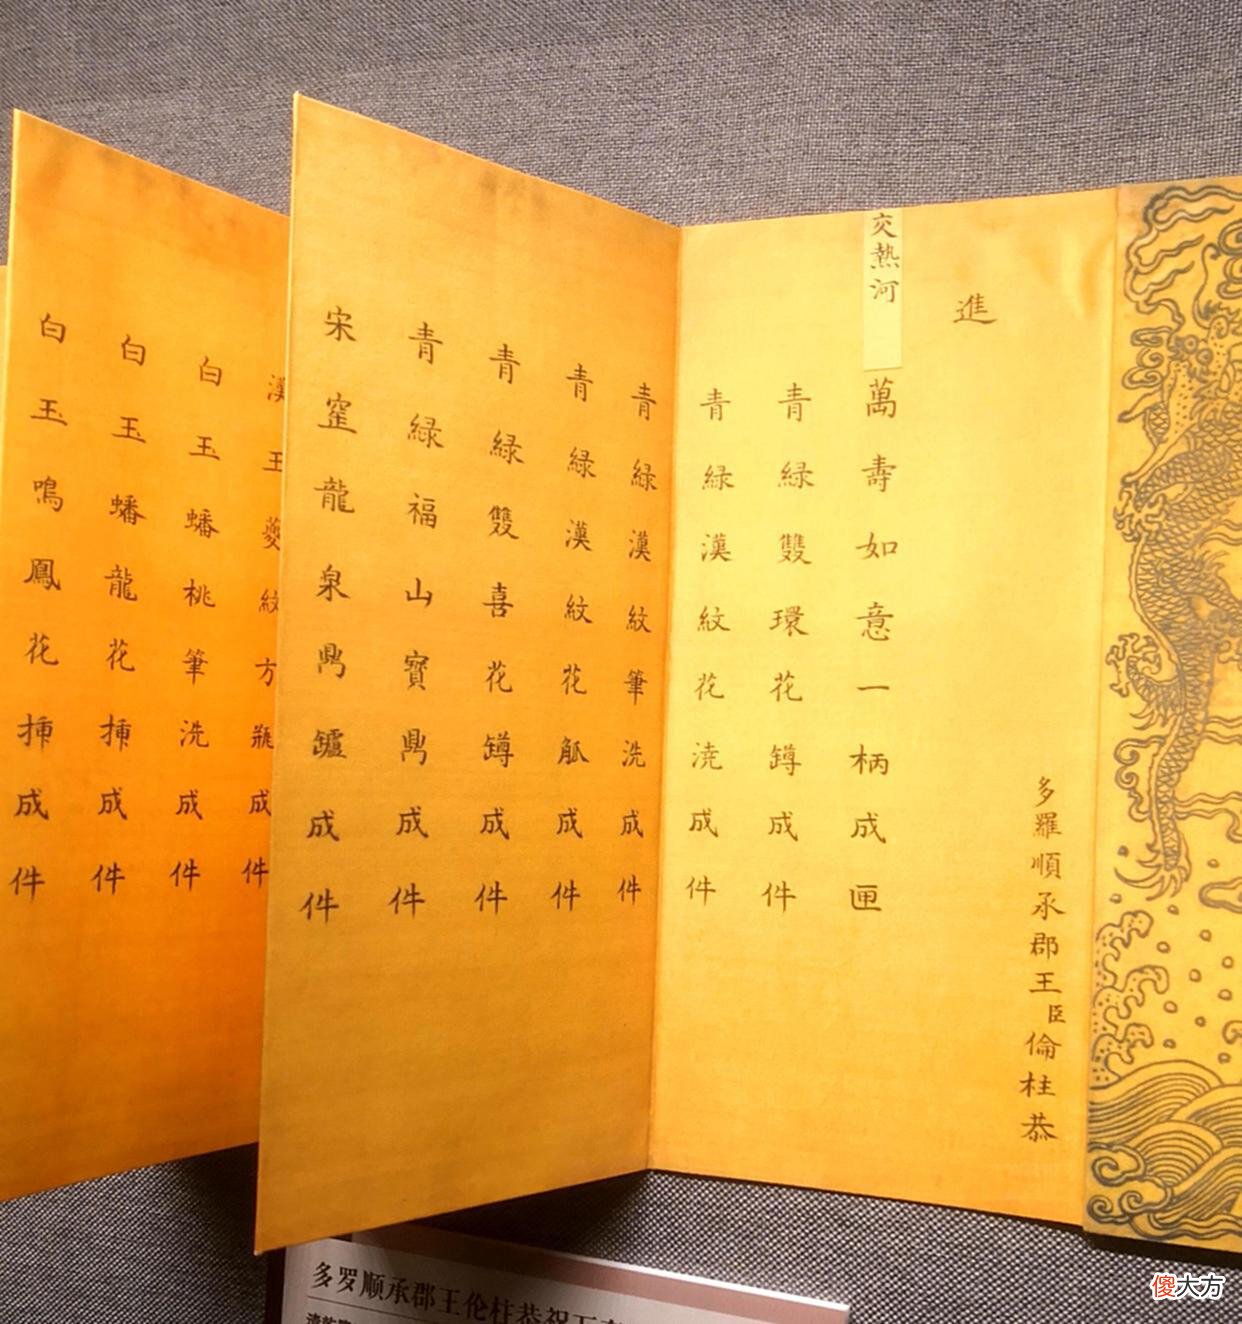 多羅順承郡王臣倫柱恭
進
交熱河
萬壽如意一柄成匣
青緑雙環花罇成件
青緑漢紋花澆成件
青緑漢紋筆洗成件
青緑漢紋花觚成件
青緑雙喜花罇成件
青緑福山寶鼎成件
宋窑龍泉鼎鑪成件
漢玉夔紋方瓶成件
白玉蟠桃筆洗成件
白玉蟠龍花揷成件
白玉鳴鳳花揷成件
多罗顺承郡王伦柱恭祝万
傻大方